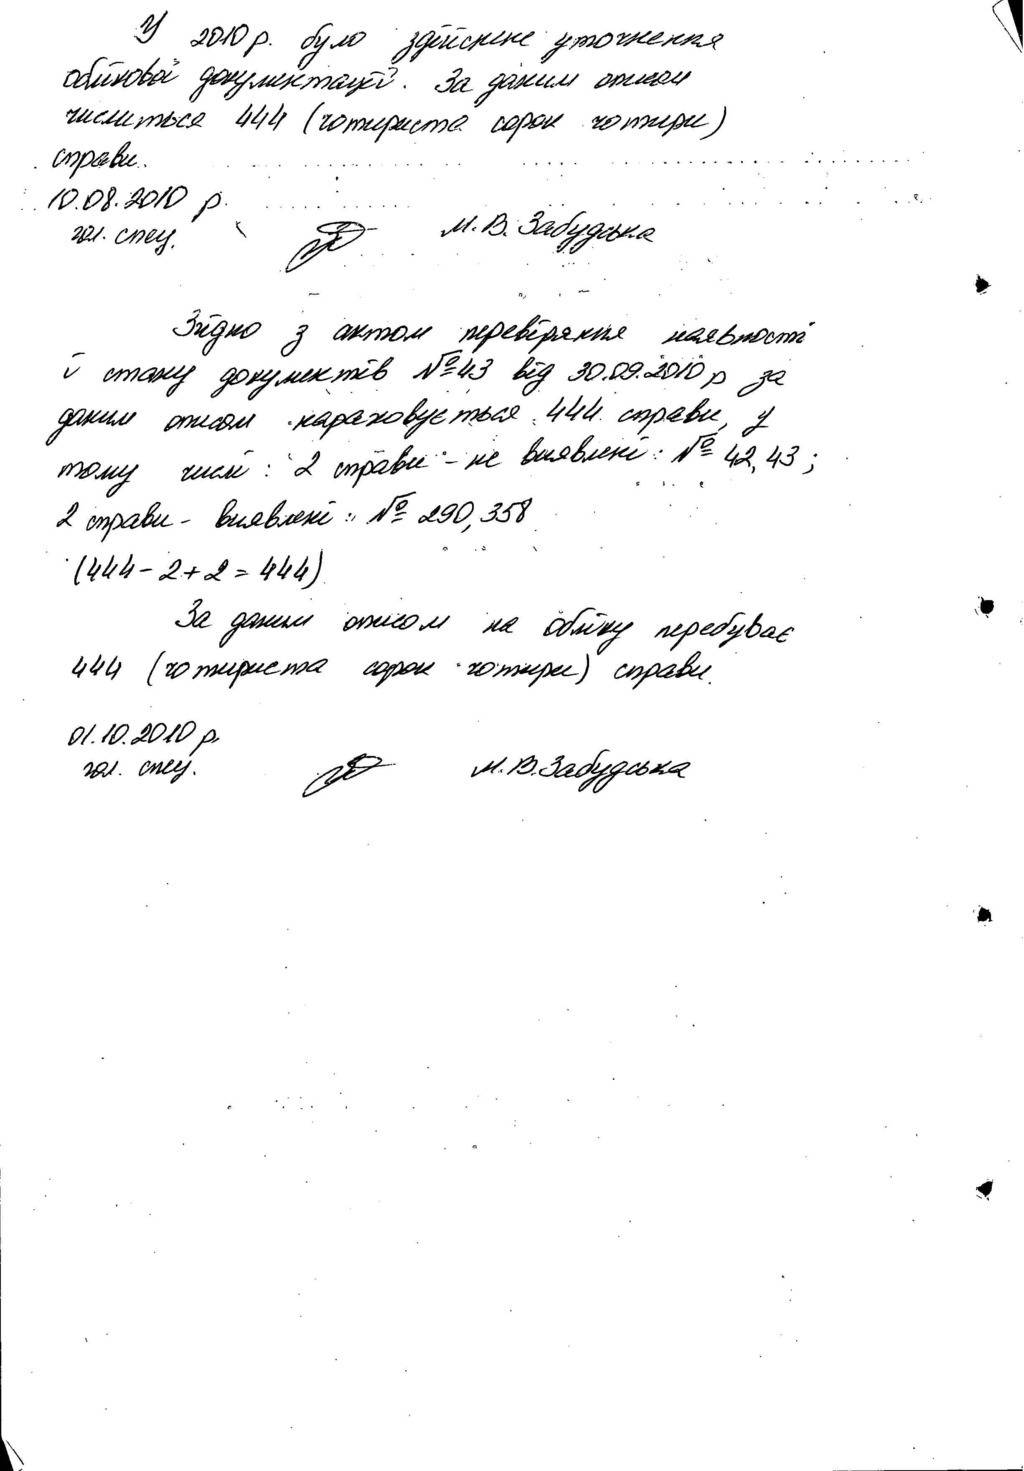 У 2010 р. було здійснене уточнення
облікової документації. За даним описом
числиться 444 (чотириста сорок чотири)
справи.
10.08.2010 р.
гол. спец. М.В. Забудська
Згідно з актом перевіряння наявності
й стану документів №43 від 30.09.2010 р за
даним описом нараховується 444 справи, у
тому числі: 2 справи - не виявлені: № 42, 43;
2 справи - виявлені: № 290, 358
(444-2+2=444)
За даним описом на обліку перебуває
444 (чотириста сорок чотири) справи.
01.10.2010 р.
гол. спец. М.В. Забудська